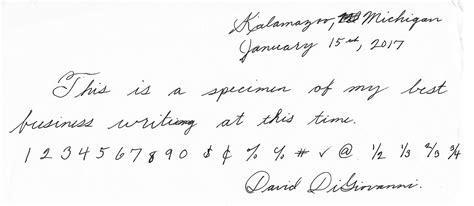 Kalamazoo, Michigan
January 15th, 2017
This is a specimen of my best
business writing at this time.
1 2 3 4 5 6 7 8 9 0 $ ¢ % % # ✓ @ 1/2 1/3 2/3 3/4
David DiGiovanni.